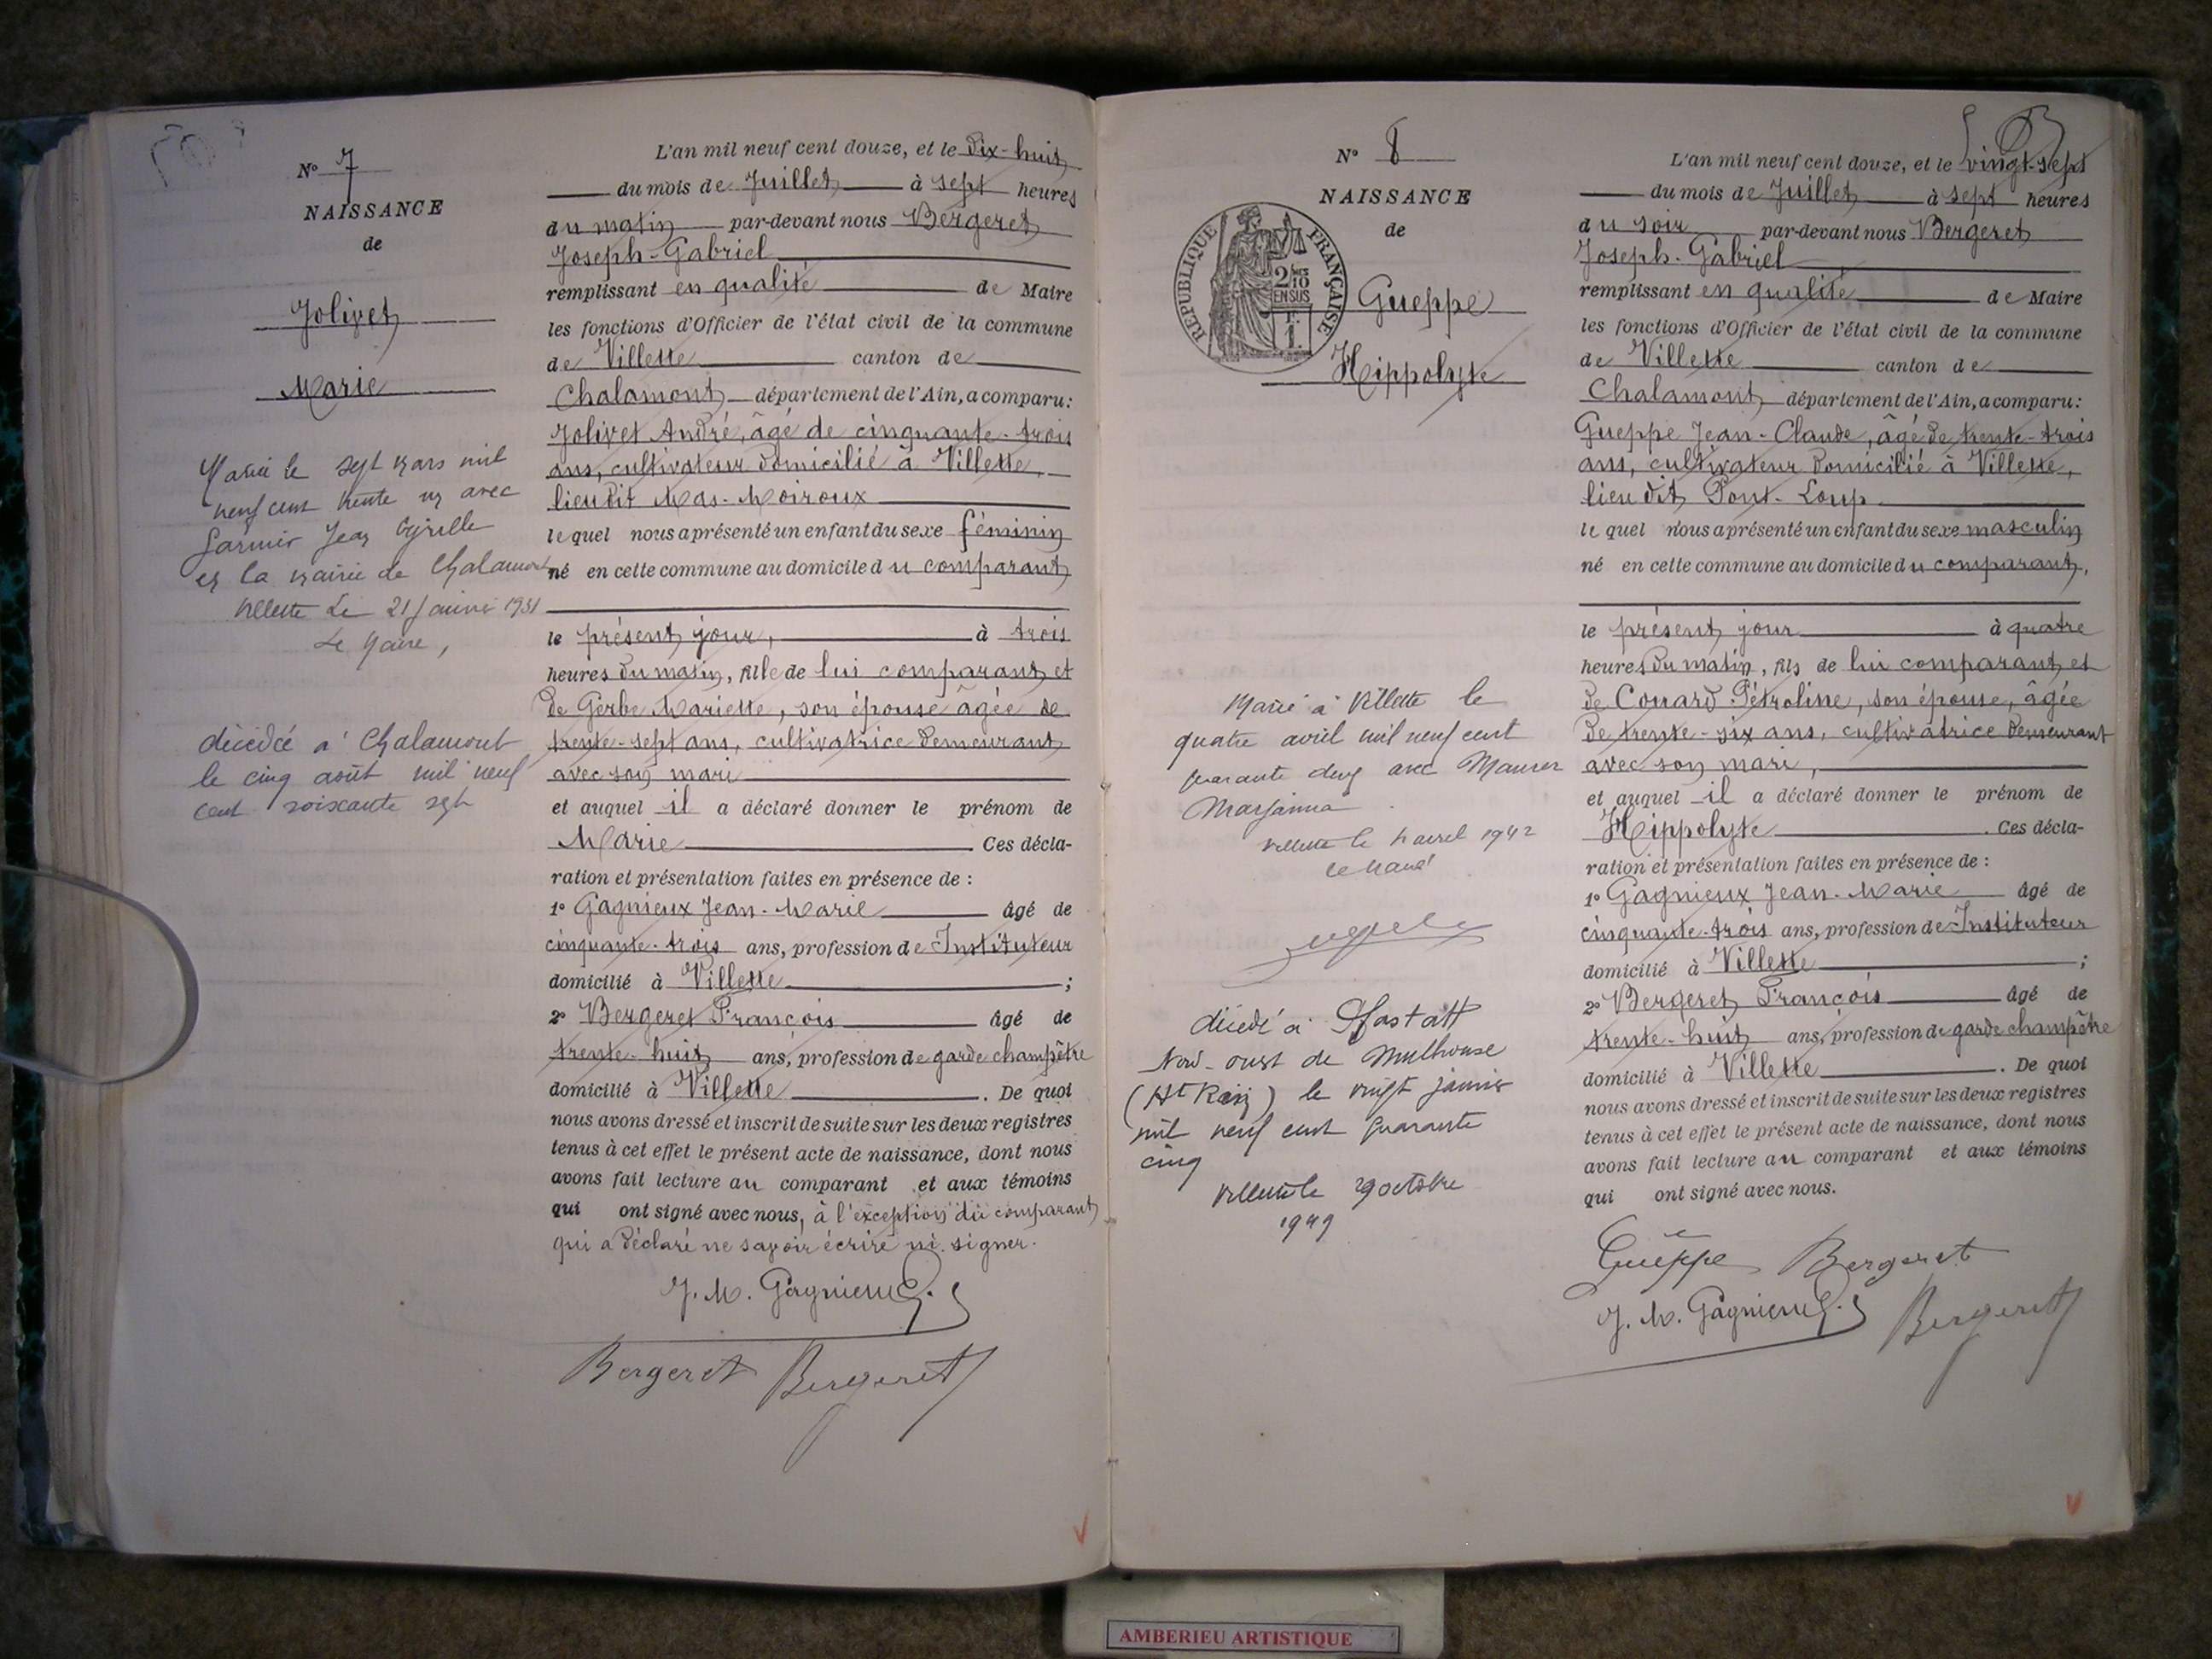 N° 7
NAISSANCE
de
Jolivet
Marie
Marié le sept mars mil
neuf cent trente un avec
Jean Cyrille
en la mairie de Chalamont
Villette Le 21 1931
Le Maire,
décédée à Chalamont
le cinq août mil neuf
cent soixante sept
L'an mil neuf cent douze, et le dix-huit
du mois de Juillet à sept heures
du matin par-devant nous Bergeret
Joseph-Gabriel
remplissant en qualité de Maire
les fonctions d'Officier de l'état civil de la commune
de Villette canton de
Chalamont département de l'Ain, a comparu:
Jolivet André, âgé de cinquante-trois
ans, cultivateur domicilié à Villette,
lieu dit Mas-Moiroux
lequel nous a présenté un enfant du sexe féminin
né en cette commune au domicile du comparant
le présent jour, à trois
heures du matin, fille de lui comparant et
de Gerbe Mariette, son épouse âgée de
trente-sept ans, cultivatrice demeurant
avec son mari
et auquel il a déclaré donner le prénom de
Marie Ces décla-
ration et présentation faites en présence de :
1° Gagnieux Jean-Marie âgé de
cinquante-trois ans, profession de Instituteur
domicilié à Villette ;
2° Bergeret François âgé de
trente-huit ans, profession de garde champêtre
domicilié à Villette . De quoi
nous avons dressé et inscrit de suite sur les deux registres
tenus à cet effet le présent acte de naissance, dont nous
avons fait lecture au comparant et aux témoins
qui ont signé avec nous, à l'exception du comparant
qui a déclaré ne savoir écrire ni signer.
J. M. Gagnieux
Bergeret Bergeret
N° 8
NAISSANCE
de
REPUBLIQUE FRANÇAISE
2/10
EN SUS
F.
1.
Gueppe
Hippolyte
Marié à Villette le
quatre avril mil neuf cent
quarante deux avec Maurer
Villette le 4 avril 1942
le Maire
décédé à Pfastatt
Nord-ouest de Mulhouse
(Ht Rhin) le vingt janvier
mil neuf cent quarante
cinq
Villette le 29 octobre
1949
L'an mil neuf cent douze, et le vingt-sept
du mois de Juillet à sept heures
du soir par-devant nous Bergeret
Joseph-Gabriel
remplissant en qualité de Maire
les fonctions d'Officier de l'état civil de la commune
de Villette canton de
Chalamont département de l'Ain, a comparu:
Gueppe Jean-Claude, âgé de trente-trois
ans, cultivateur domicilié à Villette,
lieu dit Pont-Loup
lequel nous a présenté un enfant du sexe masculin
né en cette commune au domicile du comparant,
le présent jour à quatre
heures du matin, fils de lui comparant et
de Couard Pétroline, son épouse, âgée
de trente-six ans, cultivatrice demeurant
avec son mari,
et auquel il a déclaré donner le prénom de
Hippolyte . Ces décla-
ration et présentation faites en présence de :
1° Gagnieux Jean-Marie âgé de
cinquante-trois ans, profession de Instituteur
domicilié à Villette ;
2° Bergeret François âgé de
trente-huit ans, profession de garde champêtre
domicilié à Villette . De quoi
nous avons dressé et inscrit de suite sur les deux registres
tenus à cet effet le présent acte de naissance, dont nous
avons fait lecture au comparant et aux témoins
qui ont signé avec nous.
Gueppe Bergeret
J. M. Gagnieux Bergeret
AMBERIEU ARTISTIQUE